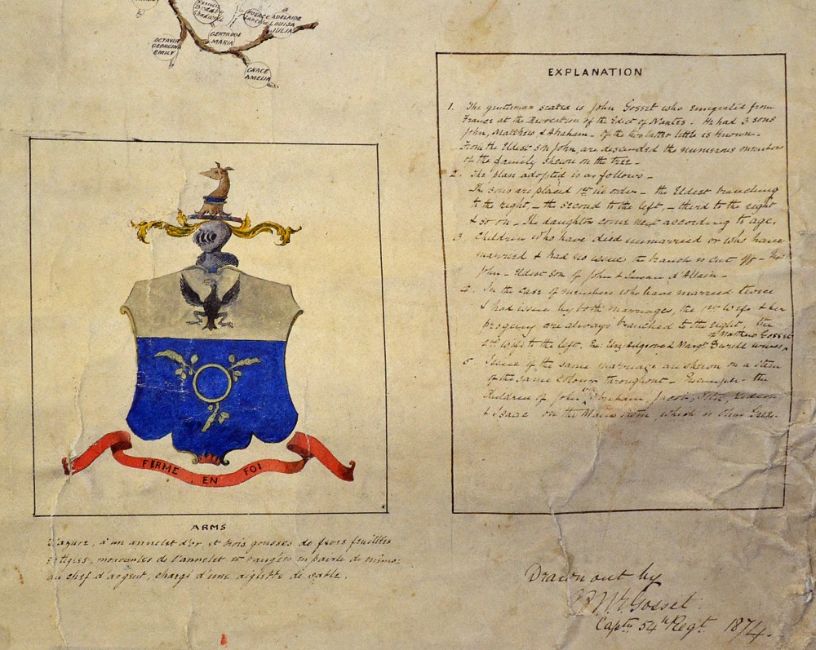 OCTAVIE
GEORGINA
EMILY
GERTRUDE
MARIA
HORACE
ADELAIDE
LOUISA
JULIA
GRACE
AMELIA
EXPLANATION
1. The gentleman seated is John Gosset who emigrated from
France at the Revocation of the Edict of Nantes. He had 3 sons
John, Matthew & Abraham. Of the two latter little is known.
From the Eldest son John, are descended the numerous members
of the family shewn on the tree.
2. The plan adopted is as follows.
The sons are placed 1st in order - the Eldest branching
to the right, - the second to the left, - third to the right
& so on. The daughters come next according to age.
3. Children who have died unmarried or who have
married & had no issue the branch is cut off -
John - Eldest son of John & Susan d'Allain.
4. In the case of members who have married twice
& had issue by both marriages, the 1st Wife & her
progeny are always branched to the right, the
2nd Wife to the left,
a Matthew Gosset
Burrell
5. Issue of the same marriage are shewn on a stem
of the same colour throughout - Example - the
children of John Abraham, Jacob, Peter, Gideon
& Isaac on the Main stem, which is Olive Green.
FERME EN FOI
ARMS
D'azur, à un annelet d'or et trois gousses de fèves feuillées
et tigées, mouvantes de l'annelet et rangées en pairle de même:
au chef d'argent, chargé d'une aiglette de sable.
Drawn out by
Gosset
Captn 54th Regt. 1874.